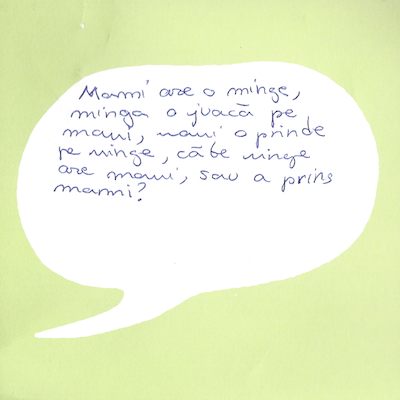 Mami are o minge,
minga o joacă pe
mami, mami o prinde
pe minge, câte minge
are mami, sau a prins
mami?